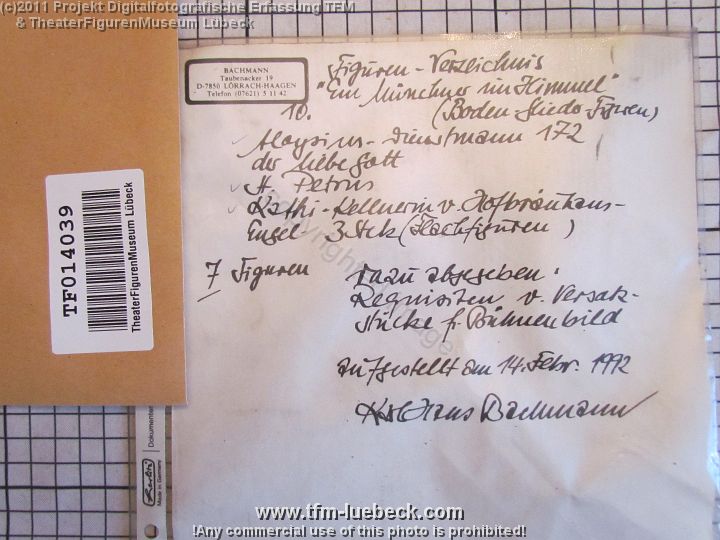 (c)2011 Projekt Digitalfotografische Erfassung TFM
& TheaterFigurenMuseum Lübeck
BACHMANN
Taubenacker 19
D-7850 LÖRRACH-HAAGEN
Telefon (07621) 5 11 42
Figuren-Verzeichnis
10. "Ein Münchner im Himmel"
(Boden-Stedo-Figuren)
Aloysius-Dienstmann 172
der liebe Gott
St. Petrus
Kathi-Kellnerin v. Hofbräuhaus-
Engel 3 Stck (Flachfiguren)
7 Figuren dazu abgegeben:
Requisiten v. Versatz-
stücke f. Bühnenbild
aufgestellt am 14. Febr. 1992
Hans Bachmann
TF014039
TheaterFigurenMuseum Lübeck
copyright
Herlitz
Made in Germany
www.tfm-luebeck.com
!Any commercial use of this photo is prohibited!